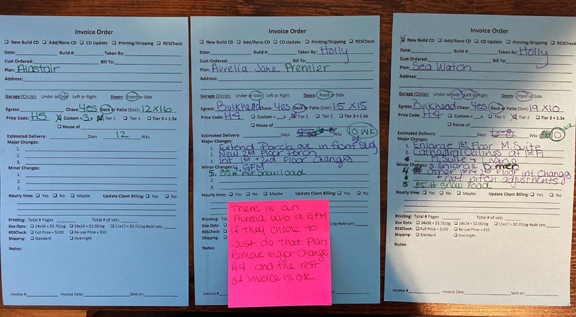 Invoice Order
New Build CD Add/Reno CD CD Update Printing/Shipping RESCheck
Date: Build #: Taken By:
Cust Ordered: Bill To:
Plan: Alastair
Address:
Garage (Circle): Under or Side Left or Right Doors: Front or Side
Egress: Chase: Yes Deck or Patio (Size): 12x16
Price Code: H5 Custom = 3x Tier 1 Tier 2 Tier 3 = 1.5x
Reuse of
Estimated Delivery: Days 12 Wks
Major Changes:
Minor Changes:
Hourly time: Yes No Maybe Update Client Billing: Yes No
Printing: Total # Pages Total # of sets
Size Opts: 24x36 = $3.75/pg 18x24 = $2.00/pg 11x17 = $0.25/pg
RESCheck: Full Price = $100 Re-Use Price = $50
Shipping: Standard Overnight
Notes:
Invoice # Invoice Date: Sent on:
Invoice Order
New Build CD Add/Reno CD CD Update Printing/Shipping RESCheck
Date: Build #: Taken By: Holly
Cust Ordered: Bill To:
Plan: Aurelia Jane Premier
Address:
Garage (Circle): Under or Side Left or Right Doors: Front or Side
Egress: Bulkhead Yes Deck or Patio (Size): 15 x15
Price Code: H4 Custom = Tier 1 Tier 2 Tier 3 = 1.5x
Reuse of
Estimated Delivery: Days 10 Wks
Major Changes:
1 Extend Porch out in front
2 New 2nd Floor Porch
3 Int 1st + 2nd Floor Changes
Minor Changes: 4 GFM
5 85# snow load
Hourly time: Yes No Maybe Update Client Billing: Yes No
There is an
Aurelia w/o a GFM
if they choose to
Just do that Plan
Remove Major Change
#4 and the rest
of invoice is OK
Invoice # Invoice Date: Sent on:
Invoice Order
New Build CD Add/Reno CD CD Update Printing/Shipping RESCheck
Date: Build #: Taken By: Holly
Cust Ordered: Bill To:
Plan: Sea Watch
Address:
Garage (Circle): Under or Side Left or Right Doors: Front or Side
Egress: Bulkhead Yes Deck or Patio (Size): 19 x10
Price Code: H4 Custom = Tier 1 Tier 2 Tier 3 = 1.5x
Reuse of
Estimated Delivery: Days 6-8 10 Wks
Major Changes:
1 Enlarge 1st Floor M. Suite
2 Cathedral
Minor Changes: 3
4 Other 1st + 2nd Floor int Changes
5 85# snow load
Hourly time: Yes No Maybe Update Client Billing: Yes No
Printing: Total # Pages Total # of sets
Size Opts: 24x36 = $3.75/pg 18x24 = $2.00/pg 11x17 = $0.25/pg
RESCheck: Full Price = $100 Re-Use Price = $50
Shipping: Standard Overnight
Notes:
Invoice # Invoice Date: Sent on: